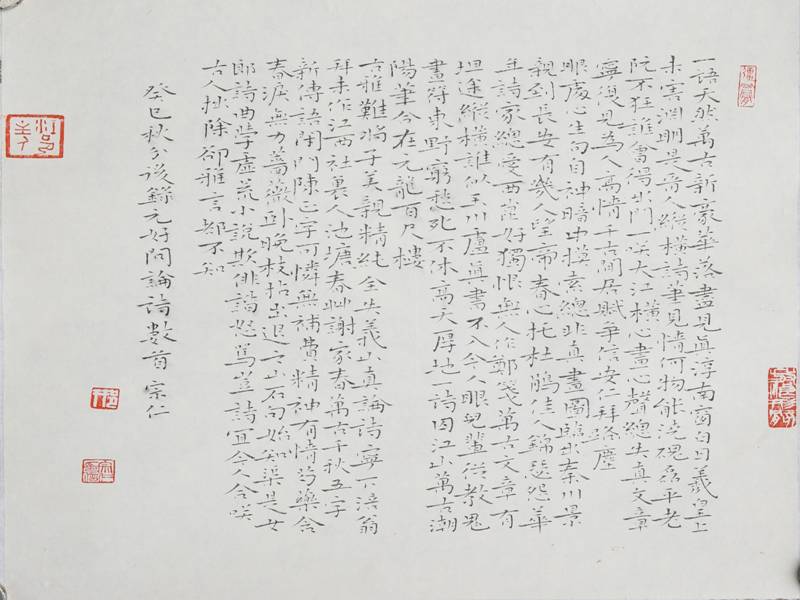 一語天然萬古新豪華落盡見真淳南窗白日羲皇上
未害淵明是晉人縱橫詩筆見情何物能澆磈磊平老
阮不狂誰會得出門一咲大江橫心畫心聲總失真文章
寧復見為人高情千古閒居賦爭信安仁拜路塵
眼處心生句自神暗中摸索總非真畫圖臨出秦川景
親到長安有幾人望帝春心托杜鵑佳人錦瑟怨華
年詩家總愛西崑好獨恨無人作鄭箋萬古文章有
坦途縱橫誰似玉川盧真書不入今人眼兒輩從教鬼
畫符東野窮愁死不休高天厚地一詩囚江山萬古潮
陽筆今在元龍百尺樓
古雅難將子美親精純全失義山真論詩寧下涪翁
拜未作江西社裏人池塘春艸謝家春萬古千秋五字
新傳語閉門陳正字可憐無補費精神有情芍藥含
春淚無力薔薇臥晚枝拈出退之山石句始知渠是女
郎詩曲學虛荒小說欺俳諧怒罵豈詩宜今人合咲
古人拙除卻雅言都不知
癸巳秋分後錄元好問論詩數首宗仁